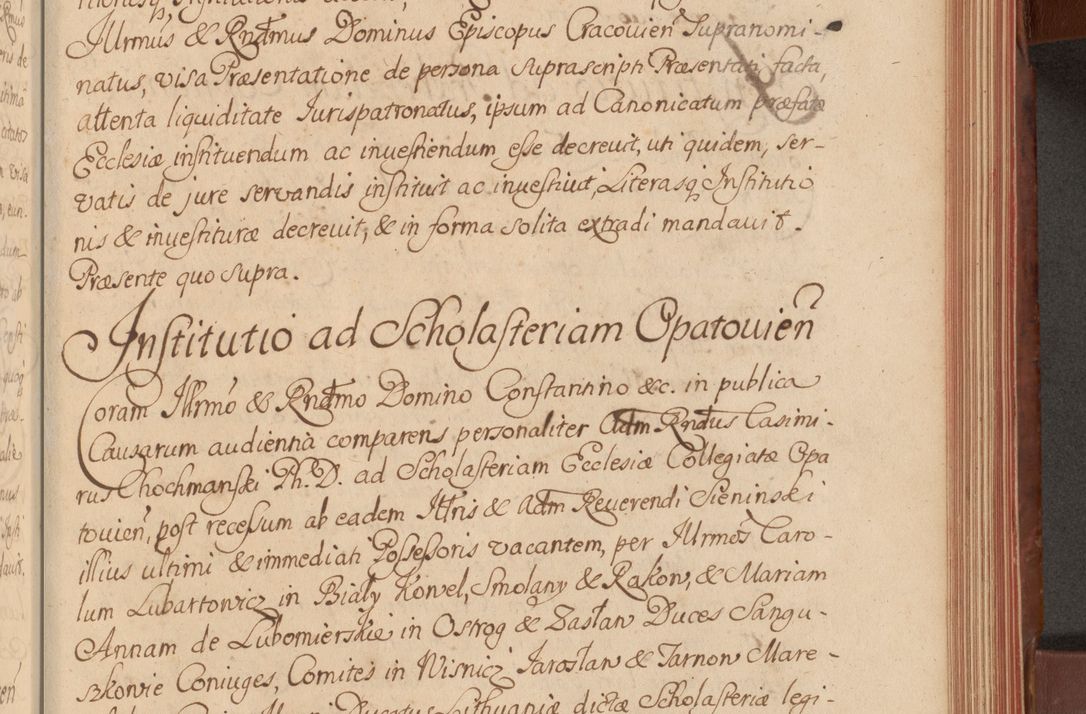 Illrmus & Rndmus Dominus Episcopus Cracouien Supranomi-
natus, visa Præsentatione de persona suprascripti Præsentati facta,
attenta liquiditate Jurispatronatus, ipsum ad Canonicatum præfatæ
Ecclesiæ instituendum ac inuestiendum esse decreuit, uti quidem, ser-
vatis de jure servandis instituit ac inuestiuit, Literasq Institutio
nis & inuestituræ decreuit, & in forma solita extradi mandauit.
Præsente quo supra.
Institutio ad Scholasteriam Opatouien
Coram Illrmo & Rndmo Domino Constantino &c. in publica
Causarum audientia comparens personaliter Adm Rndus Casimi-
rus Chochmanski Ph. D. ad Scholasteriam Ecclesiæ Collegiatæ Opa
touien, post recessum ab eadem Illris & Adm Reuerendi Sieninski
illius ultimi & immediati Possessoris vacantem, per Illrmos Caro-
lum Lubartowicz in Biały Kowel, Smolany & Rakow, & Mariam
Annam de Lubomierskie in Ostrog & Zasław Duces Sangu-
szkowie Coniuges, Comites in Wisnicz Jarosław & Tarnow Mare-
Ducatus Lithuaniæ dictæ Scholasteriæ legi-